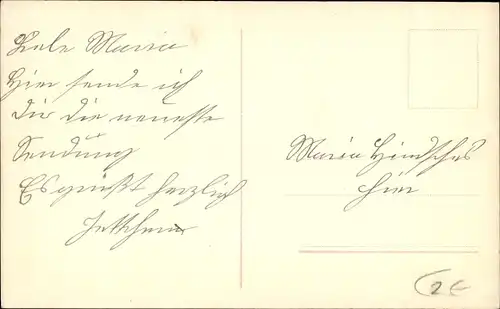 Liebe Maria
Hier sende ich
Dir die neueste
Sendung
Es grüßt herzlich
Maria
hier
2€